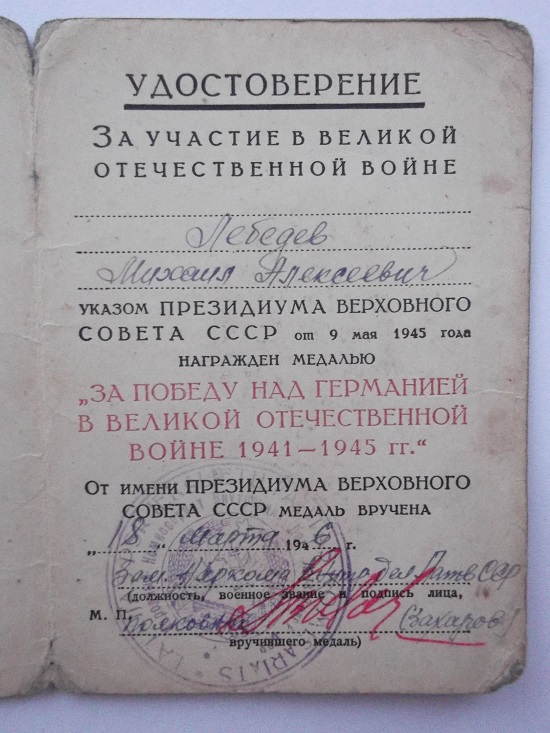 УДОСТОВЕРЕНИЕ
ЗА УЧАСТИЕ В ВЕЛИКОЙ
ОТЕЧЕСТВЕННОЙ ВОЙНЕ
Лебедев
Михаил Алексеевич
УКАЗОМ ПРЕЗИДИУМА ВЕРХОВНОГО
СОВЕТА СССР от 9 мая 1945 года
НАГРАЖДЕН МЕДАЛЬЮ
„ЗА ПОБЕДУ НАД ГЕРМАНИЕЙ
В ВЕЛИКОЙ ОТЕЧЕСТВЕННОЙ
ВОЙНЕ 1941—1945 гг.“
ОТ ИМЕНИ ПРЕЗИДИУМА ВЕРХОВНОГО
СОВЕТА СССР МЕДАЛЬ ВРУЧЕНА
„18“ марта 1946 г.
Зам. Наркома Внутр дел Латв ССР
(должность, военное звание и подпись лица,
М. П. Полковник (Захаров)
вручившего медаль)